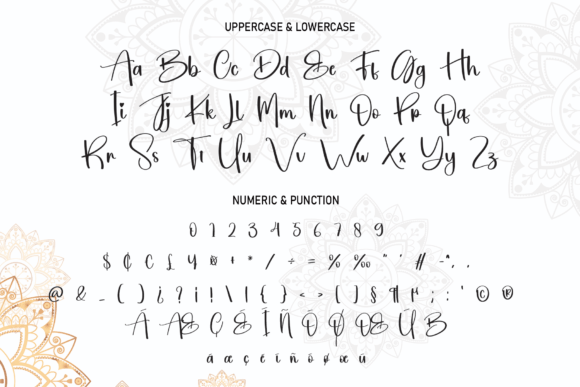 UPPERCASE & LOWERCASE
Aa Bb Cc Dd Ee Ff Gg Hh
Ii Jj Kk Ll Mm Nn Oo Pp Qq
Rr Ss Tt Uu Vv Ww Xx Yy Zz
NUMERIC & PUNCTION
0 1 2 3 4 5 6 7 8 9
$ ¢ € £ ¥ + * / ÷ = % ‰ " ' # ~ ^ , .
@ & _ ( ) ¿ ? ¡ ! \ | { } < > [ ] § ¶ ; : ' © ®
Ä Æ Ç Ë Ï Ñ Ö Ø Œ Ü ß
ä æ ç ë ï ñ ö ø œ ü